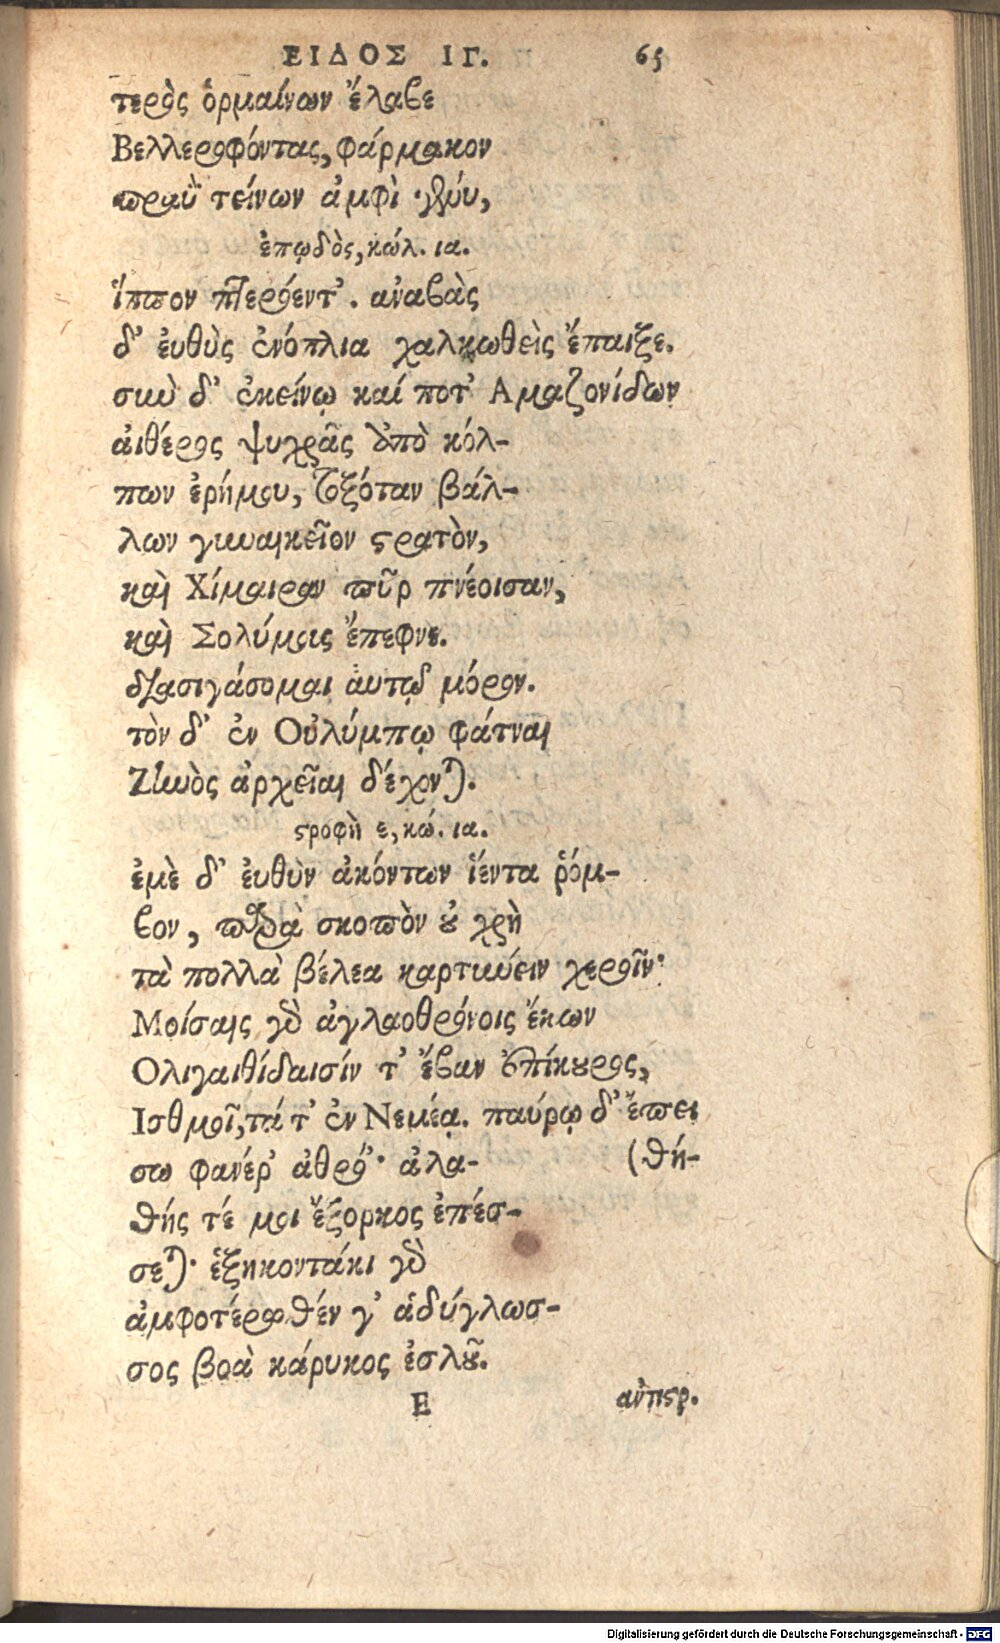 ΕΙΔΟΣ ΙΓ. 65
τερὸς ὁρμαίνων ἔλαβε
Βελλεροφόντας, φάρμακον
πραῢ τείνων ἀμφὶ γένυ,
ἐπῳδὸς, κώλ. ια.
ἵππον πτερόεντ'. ἀναβὰς
δ' ἐυθὺς ἐνόπλια χαλκωθεὶς ἔπαιζε.
σὺν δ' ἐκείνῳ καί ποτ' Αμαζονίδων
αἰθέρος ψυχρᾶς ἀπὸ κόλ-
πων ἐρήμου, τοξόταν βάλ-
λων γυναικεῖον στρατὸν,
καὶ Χίμαιραν πῦρ πνέοισαν,
καὶ Σολύμοις ἔπεφνε.
διασιγάσομαι ἀυτῷ μόρον.
τὸν δ' ἐν Οὐλύμπῳ φάτναι
Ζηνὸς ἀρχεῖαι δέχονται.
στροφὴ ε, κώ. ια.
ἐμὲ δ' ἐυθὺν ἀκόντων ἱέντα ῥόμ-
βον, παρὰ σκοπὸν οὐ χρὴ
τὰ πολλὰ βέλεα καρτιωύειν χεροῖν·
Μοίσαις γὰρ ἀγλαοθρόνοις ἔκων
Ολιγαιθίδαισίν τ' ἔβαν ἐπίκουρος,
Ισθμοῖ, τά τ' ἐν Νεμέᾳ. παύρῳ δ' ἔπει
σω φανέρ' ἀθρό'· ἀλα- (θή-
θής τέ μοι ἔξορκος ἐπέσ-
σεται· ἑξηκοντάκι γὰρ
ἀμφοτέρωθέν γ' ἁδύγλωσ-
σος βοὰ κάρυκος ἐσλοῦ.
E ἀντιστρ.
Digitalisierung gefördert durch die Deutsche Forschungsgemeinschaft - DFG